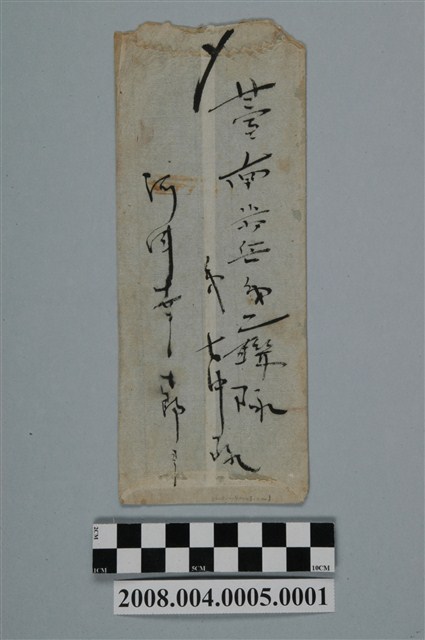 〆
臺南歩兵第二聯隊
第七中隊
河田幸十郎
3CM
1CM 5CM 10CM
2008.004.0005.0001